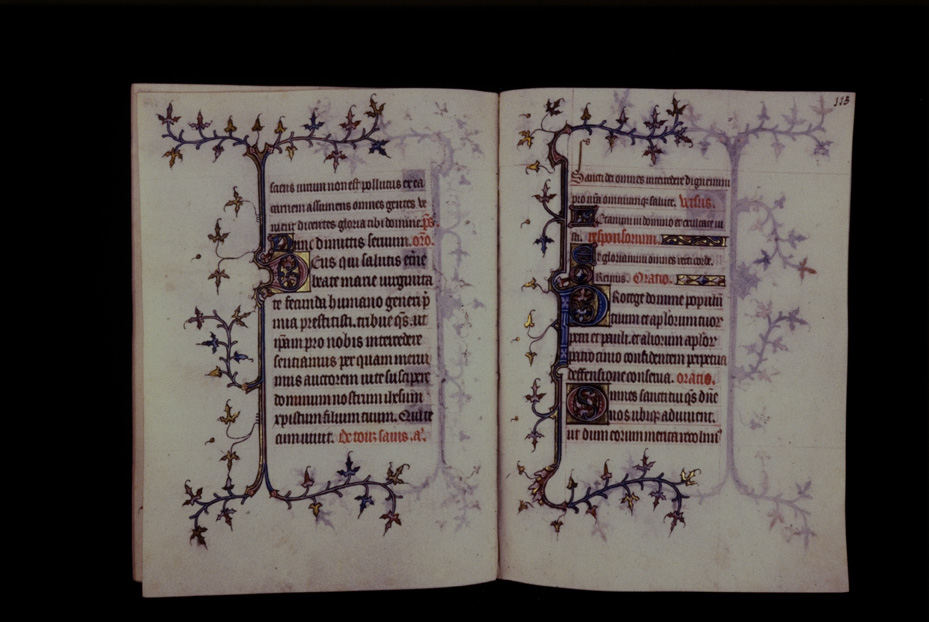 sacus uirum non est pollutus ex ea
carnem assumens omnes gentes ue
nient dicentes gloria tibi domine. ps.
Nunc dimittis seruum. oro.
Deus qui salutis et̄ne
beate marie uirginita
te fecunda humano generi p̄
mia prestitisti. tribue q̄s. ut
ip̄am pro nobis intercedere
sentiamus per quam merui
mus auctorem uite suscipere
dominum nostrum ihesum
xpistum filium tuum. Qui te
cum uiuit. De touz sains. a̾.
113
Sancti dei omnes intercedere dignemini
pro nr̄a omniumq; salute. Versus.
Letamini in domino et exultate iu
sti. responsorium
Et gloriamini omnes recti corde.
Oratio.
Protege domine populum
tuum et apl̄orum tuor
petri et pauli. et aliorum apl̄or
patrocinio confidentem perpetua
deffensione conserua. oratio.
Omnes sancti tui q̄s dn̄e
nos ubiq; adiuuent.
ut dum eorum merita recolim̾